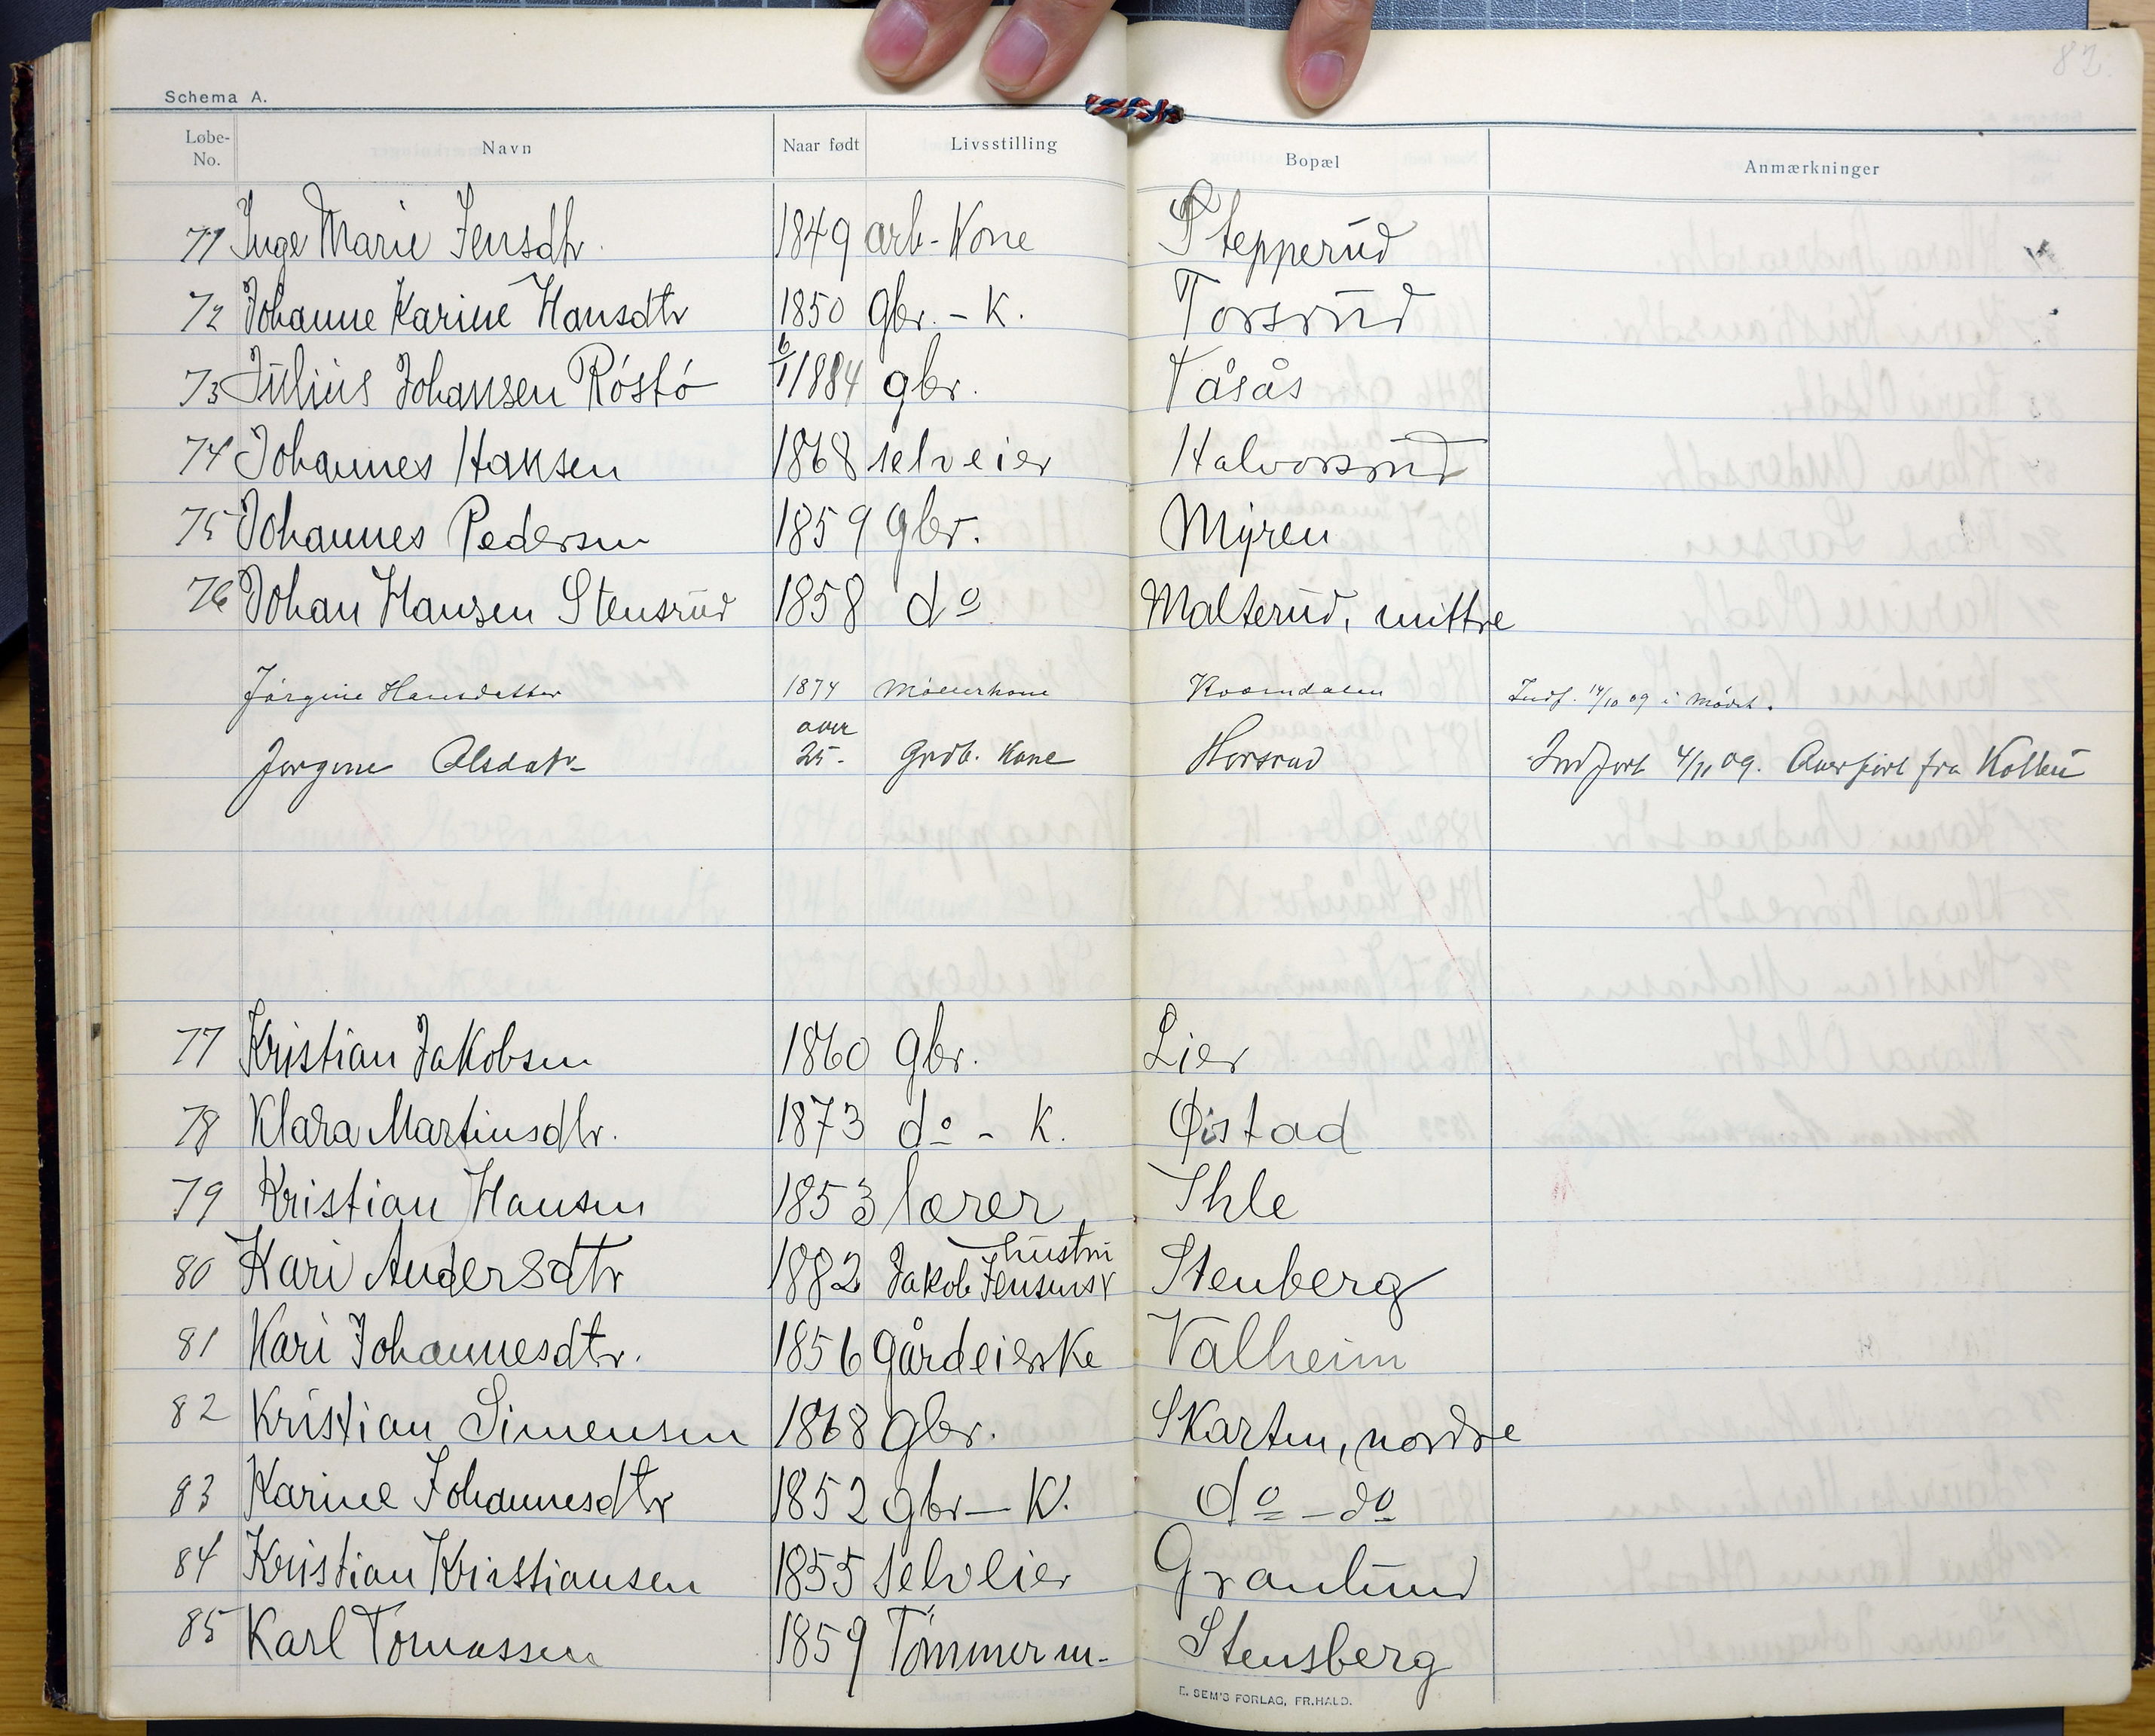 82.
Schema A.
Løbe-No. Navn Naar født Livsstilling Bopæl Anmærkninger
71 Inge Marie Jensdtr. 1849 arb-Kone Stepperud
72 Johanne Karine Hansdtr 1850 gbr. - K. Torsrud
73 Julius Johansen Röstö 6/1 1884 gbr. Våsås
74 Johannes Hansen 1868 selveier Halvorsrud
75 Johannes Pedersen 1859 gbr. Myren
76 Johan Hansen Stensrud 1858 do Malterud, mittre
Jørgine Hansdatter 1874 Møllerkone Kværndalen Indf. 14/10 09 i Mødet.
Jørgine Olsdatr over 25- Grdb. Kone Horsrud Indført 4/11 09. Overført fra Kolbu
77 Kristian Jakobsen 1860 gbr. Lier
78 Klara Martinsdtr. 1873 do - K. Øistad
79 Kristian Hansen 1853 lærer Ihle
80 Kari Andersdtr 1882 Jakob Jensens hustru Stenberg
81 Kari Johannesdtr. 1856 gårdeierske Valheim
82 Kristian Simensen 1868 gbr. Skarten, nordre
83 Karine Johannesdtr 1852 gbr - K. do - do
84 Kristian Kristiansen 1855 selveier Granlund
85 Karl Tomassen 1859 Tömmerm. Stensberg
E. SEM'S FORLAG, FR.HALD.